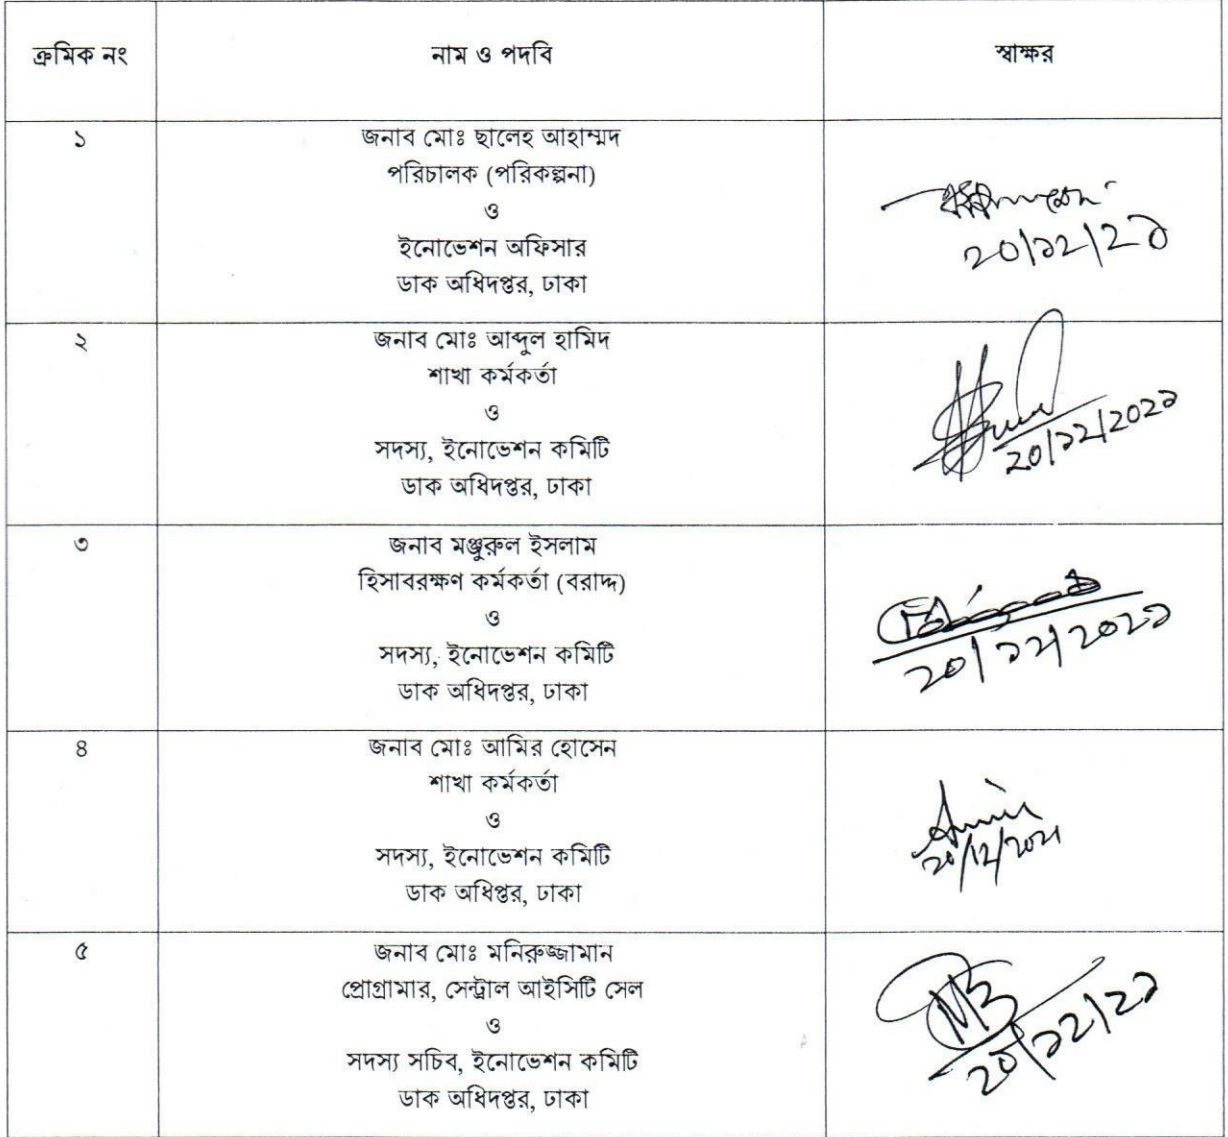 ক্রমিক নং নাম ও পদবি স্বাক্ষর
১ জনাব মোঃ ছালেহ আহাম্মদ
পরিচালক (পরিকল্পনা)
ও
ইনোভেশন অফিসার
ডাক অধিদপ্তর, ঢাকা
২০/১২/২১
২ জনাব মোঃ আব্দুল হামিদ
শাখা কর্মকর্তা
ও
সদস্য, ইনোভেশন কমিটি
ডাক অধিদপ্তর, ঢাকা
২০/১২/২০২১
৩ জনাব মঞ্জুরুল ইসলাম
হিসাবরক্ষণ কর্মকর্তা (বরাদ্দ)
ও
সদস্য, ইনোভেশন কমিটি
ডাক অধিদপ্তর, ঢাকা
২০/১২/২০২১
৪ জনাব মোঃ আমির হোসেন
শাখা কর্মকর্তা
ও
সদস্য, ইনোভেশন কমিটি
ডাক অধিপ্তর, ঢাকা
Amir
20/12/2021
৫ জনাব মোঃ মনিরুজ্জামান
প্রোগ্রামার, সেন্ট্রাল আইসিটি সেল
ও
সদস্য সচিব, ইনোভেশন কমিটি
ডাক অধিদপ্তর, ঢাকা
২০/১২/২১